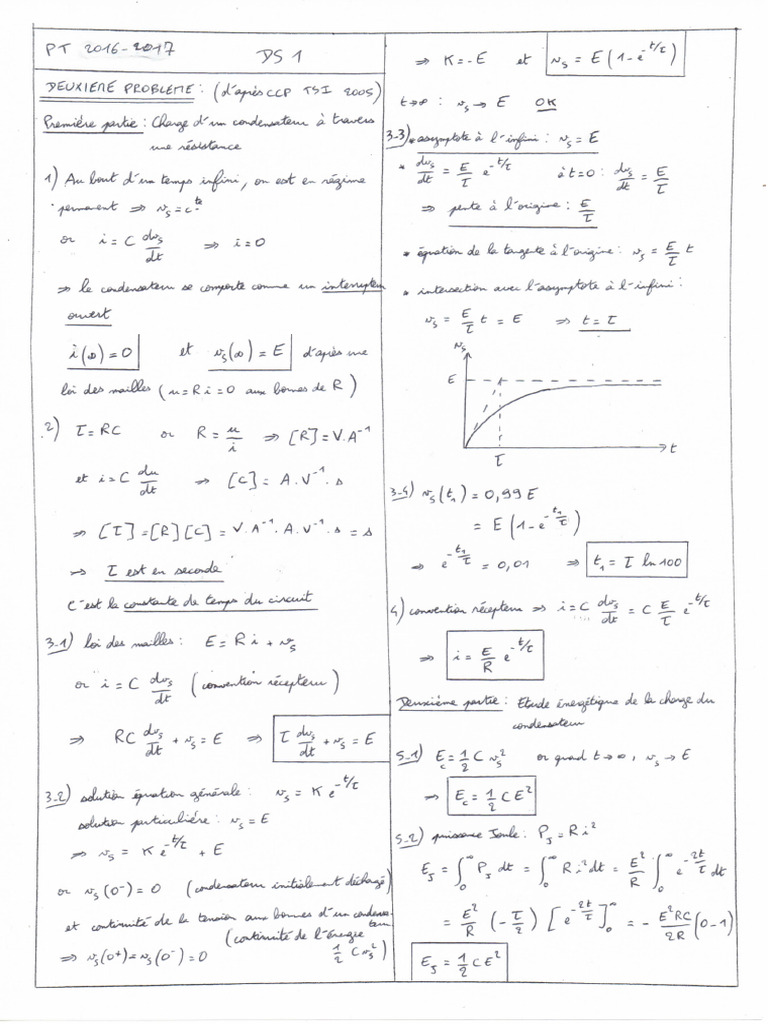 PT 2016-2017 DS 1
DEUXIEME PROBLEME : (d'après CCP TSI 2005)
Première partie : Charge d'un condensateur à travers
une résistance
1) Au bout d'un temps infini, on est en régime
permanent ⇒ v_s = c^te
or i = C dv_s/dt ⇒ i = 0
⇒ le condensateur se comporte comme un interrupteur
ouvert
i(∞) = 0 et v_s(∞) = E d'après une
loi des mailles (u = R i = 0 aux bornes de R)
2) τ = RC or R = u/i ⇒ [R] = V.A^-1
et i = C du/dt ⇒ [C] = A.V^-1.s
⇒ [τ] = [R][C] = V.A^-1.A.V^-1.s = s
⇒ τ est en seconde
C'est la constante de temps du circuit
3-1) loi des mailles : E = R i + v_s
or i = C dv_s/dt (convention récepteur)
⇒ RC dv_s/dt + v_s = E ⇒ τ dv_s/dt + v_s = E
3-2) solution équation générale : v_s = K e^-t/τ
solution particulière : v_s = E
⇒ v_s = K e^-t/τ + E
or v_s(0^-) = 0 (condensateur initialement déchargé)
et continuité de la tension aux bornes d'un condensateur
(continuité de l'énergie
⇒ v_s(0^+) = v_s(0^-) = 0 1/2 C v_s^2)
⇒ K = -E et v_s = E(1 - e^-t/τ)
t→∞ : v_s → E OK
3-3) • asymptote à l'infini : v_s = E
• dv_s/dt = E/τ e^-t/τ à t=0 : dv_s/dt = E/τ
⇒ pente à l'origine : E/τ
• équation de la tangente à l'origine : v_s = E/τ t
• intersection avec l'asymptote à l'infini :
v_s = E/τ t = E ⇒ t = τ
v_s
E
t
τ
3-4) v_s(t_1) = 0,99 E
= E(1 - e^-t_1/τ)
⇒ e^-t_1/τ = 0,01 ⇒ t_1 = τ ln 100
4) convention récepteur ⇒ i = C dv_s/dt = C E/τ e^-t/τ
⇒ i = E/R e^-t/τ
Deuxième partie : Etude énergétique de la charge du
condensateur
5-1) E_c = 1/2 C v_s^2 or quad t→∞, v_s → E
⇒ E_c = 1/2 C E^2
5-2) puissance Joule : P_J = R i^2
E_J = ∫_0^∞ P_J dt = ∫_0^∞ R i^2 dt = E^2/R ∫_0^∞ e^-2t/τ dt
= E^2/R (-τ/2) [e^-2t/τ]_0^∞ = - E^2RC/2R (0-1)
E_J = 1/2 C E^2